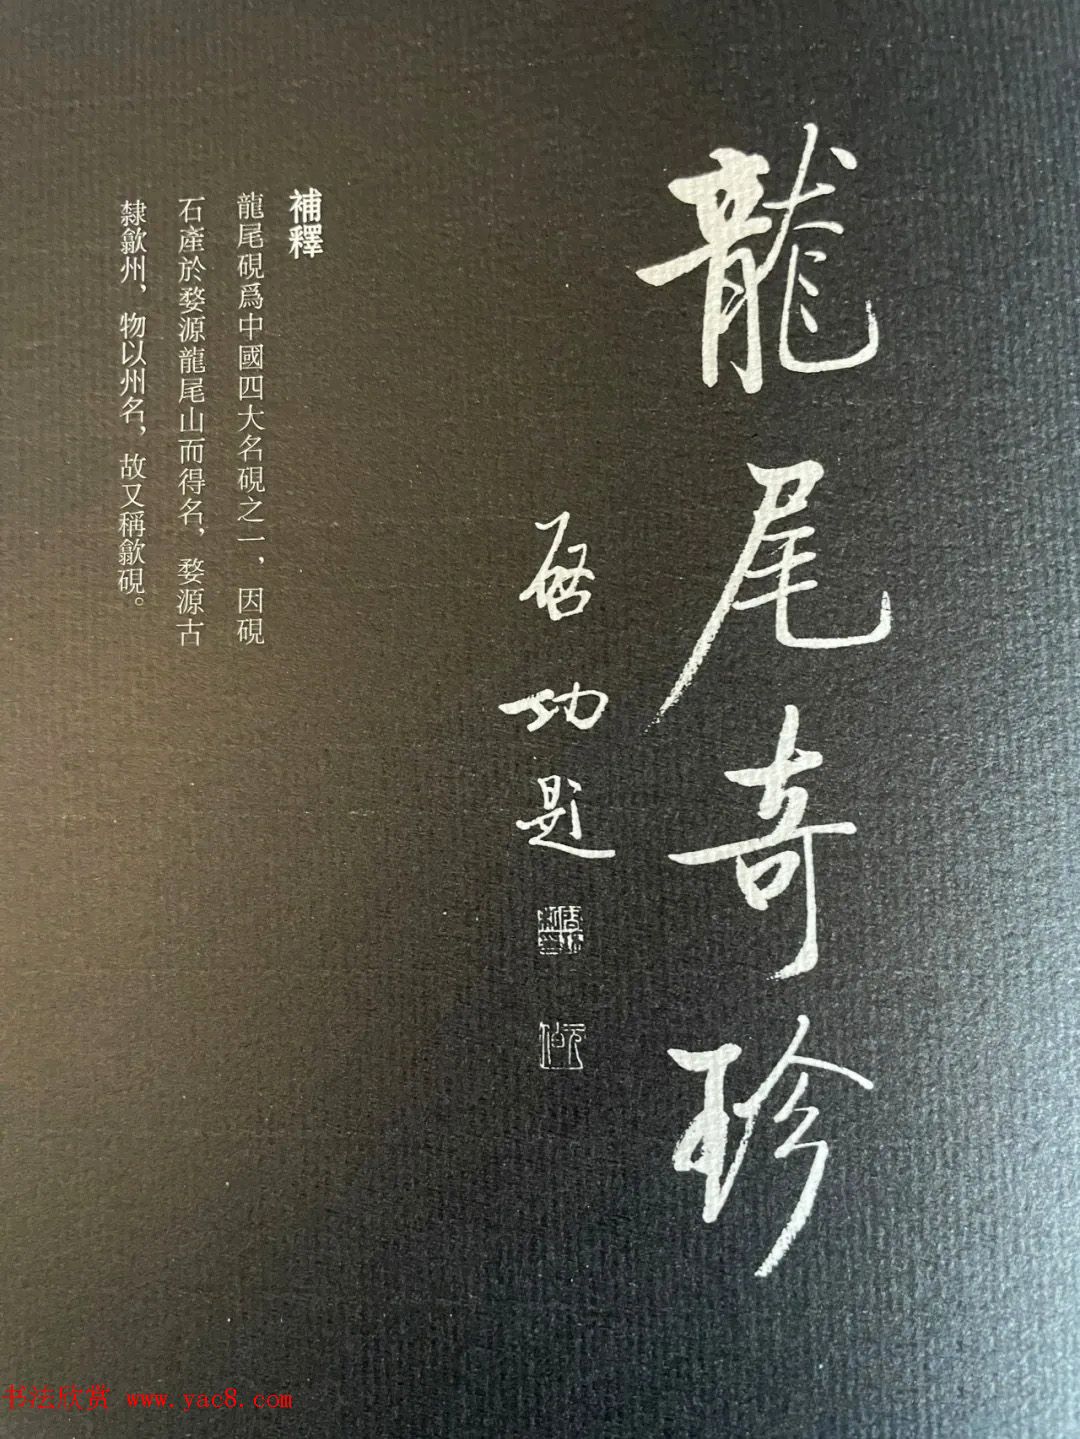 龍尾奇珍
啓功題
補釋
龍尾硯爲中國四大名硯之一，因硯
石產於婺源龍尾山而得名，婺源古
隸歙州，物以州名，故又稱歙硯。
书法欣赏 www.yac8.com